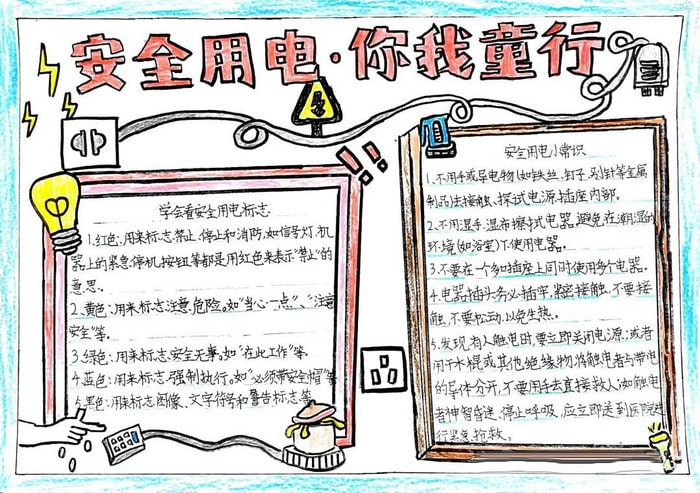 安全用电·你我童行
学会看安全用电标志
1.红色:用来标志禁止、停止和消防,如信号灯、机
器上的紧急停机按钮等都是用红色来表示“禁止”的
意思。
2.黄色:用来标志注意危险。如“当心一点”、“注意
安全”等。
3.绿色:用来标志安全无事。如“在此工作”等。
4.蓝色:用来标志强制执行。如“必须带安全帽”等
5.黑色:用来标志图像、文字符号和警告标志等
安全用电小常识
1.不用手或导电物(如铁丝、钉子、别针等金属
制品)去接触、探试电源插座内部。
2.不用湿手、湿布擦拭电器。避免在潮湿的
环境(如浴室)下使用电器。
3.不要在一个多口插座上同时使用多个电器。
4.电器插头务必插牢,紧密接触,不要接
触,不要松动,以免生热。
5.发现有人触电时,要立即关闭电源;或者
用干木棍或其他绝缘物将触电者与带电
的导体分开,不要用手去直接救人;如触电
者神智昏迷、停止呼吸,应立即送到医院进
行紧急抢救。